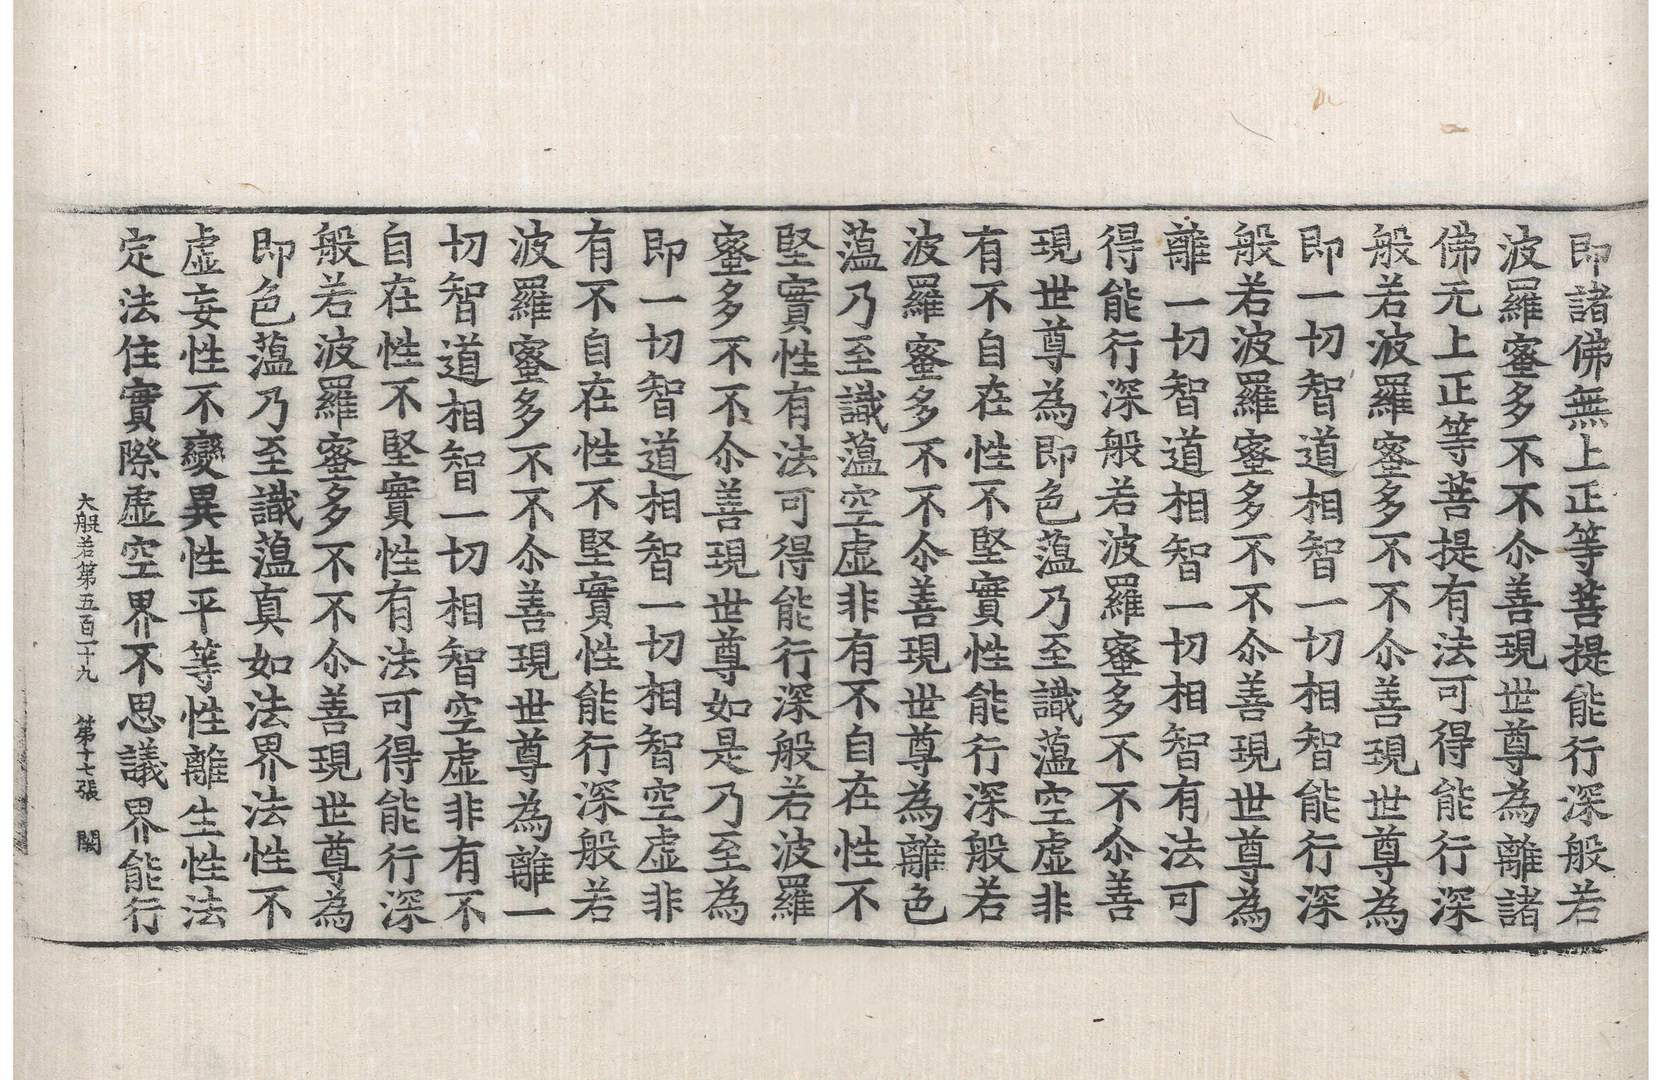 即諸佛無上正等菩提能行深般若
波羅蜜多不不尒善現世尊為離諸
佛无上正等菩提有法可得能行深
般若波羅蜜多不不尒善現世尊為
即一切智道相智一切相智能行深
般若波羅蜜多不不尒善現世尊為
離一切智道相智一切相智有法可
得能行深般若波羅蜜多不不尒善
現世尊為即色薀乃至識薀空虛非
有不自在性不堅實性能行深般若
波羅蜜多不不尒善現世尊為離色
薀乃至識薀空虛非有不自在性不
堅實性有法可得能行深般若波羅
蜜多不不尒善現世尊如是乃至為
即一切智道相智一切相智空虛非
有不自在性不堅實性能行深般若
波羅蜜多不不尒善現世尊為離一
切智道相智一切相智空虛非有不
自在性不堅實性有法可得能行深
般若波羅蜜多不不尒善現世尊為
即色薀乃至識薀真如法界法性不
虛妄性不變異性平等性離生性法
定法住實際虛空界不思議界能行
大般若第五百二十九 第十七張 闕